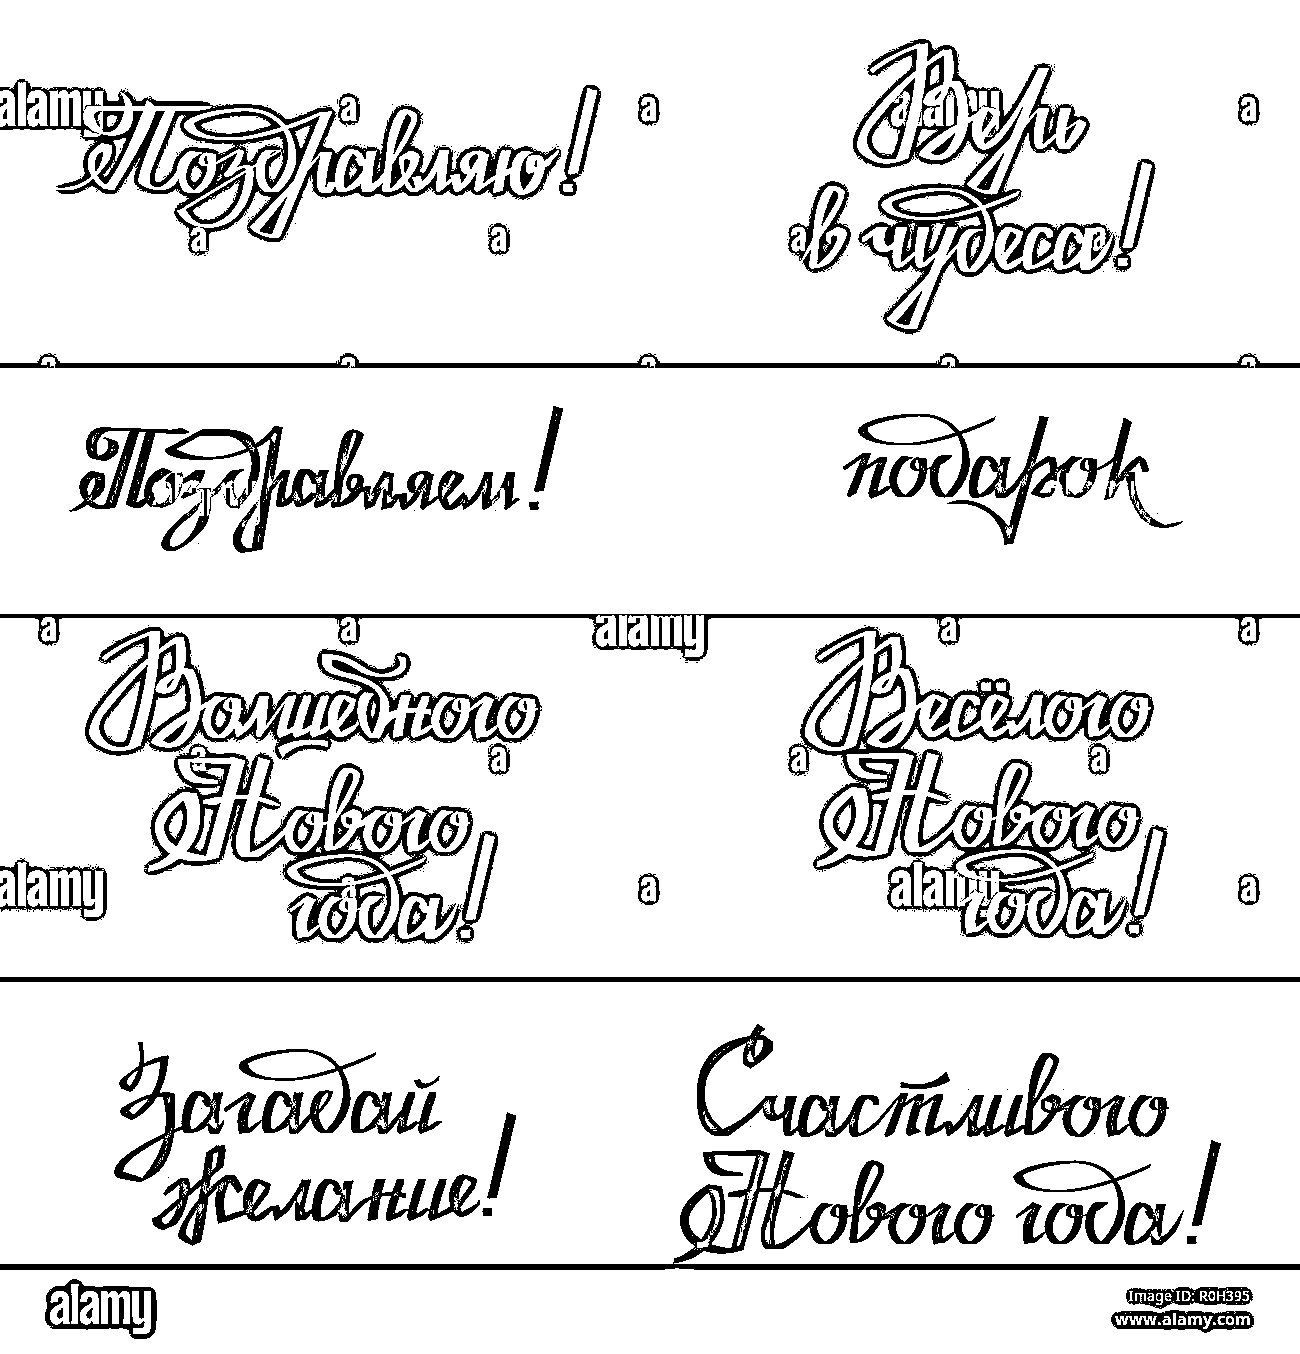 Поздравляю!
Верь
в чудеса!
Поздравляем!
подарок
Волшебного
Нового
года!
Весёлого
Нового
года!
Загадай
желание!
Счастливого
Нового года!
alamy
Image ID: R0H395
www.alamy.com